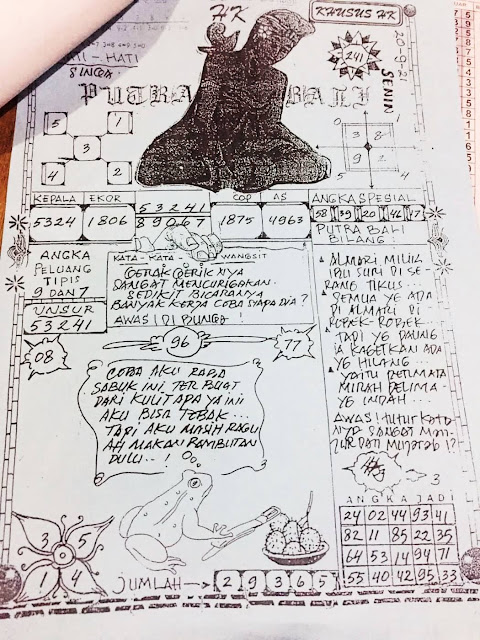 HK
KHUSUS HK
HATI - HATI
SINGA
241
20-9-21
SENIN
PUTRA BALI
5 1
3
4 2
0 1
3 8
9 2
5
KEPALA EKOR
5324 1806
53241
89067
COP AS
1875 4963
ANGKA SPESIAL
58 39 20 46 17
PUTRA BALI
BILANG!
ANGKA
PELUANG
TIPIS
9 DAN 7
UNSUR
53241
KATA - KATA WANGSIT
GERAK GERIK NYA
SANGAT MENCURIGAKAN.
SEDIKIT BICARANYA
BANYAK KERJA COBA SIAPA DIA?
AWAS! DI BUNGA
ALMARI MILIK
IBU SURI DI SE-
RANG TIKUS...
SEMUA YG ADA
DI ALMARI DI
ROBEK-ROBEK...
TAPI YG
KAGETKAN ADA
YG HILANG...
YAITU PERMATA
MERAH DELIMA-
YG INDAH...
AWAS! TUTUR KATA
NYA SANGAT MAN-
JUR DAN MUJARAB!?
08
96
77
COBA AKU RABA
SABUK INI, TER BUAT
DARI KULIT APA YA INI
AKU BISA TEBAK...
TAPI AKU MASIH RAGU
AH MAKAN RAMBUTAN
DULU..!
3
ANGKA JADI
24 02 44 93 41
82 11 85 22 35
64 53 14 94 71
55 40 42 95 33
3 5
1 4
JUMLAH
2 9 3 6 5